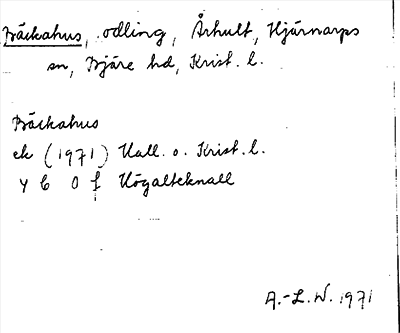 Bäckahus, odling, Århult, Hjärnarps
sn, Bjäre hd, Krist. l.
Bäckahus
ek (1971) Hall. o. Krist. l.
4 C 0 f Högalteknall
A.-L. W. 1971